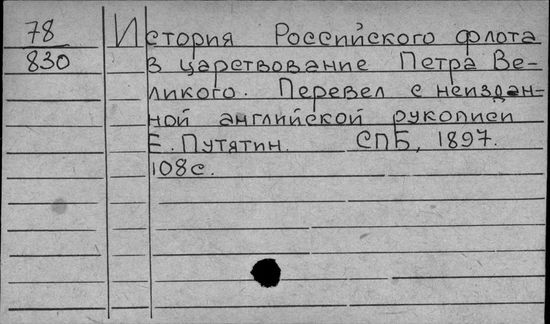 78
830
История Российского флота
в царствование Петра Ве-
ликого. Перевел с неиздан-
ной английской рукописи
Е. Путятин. СПБ, 1897.
108с.